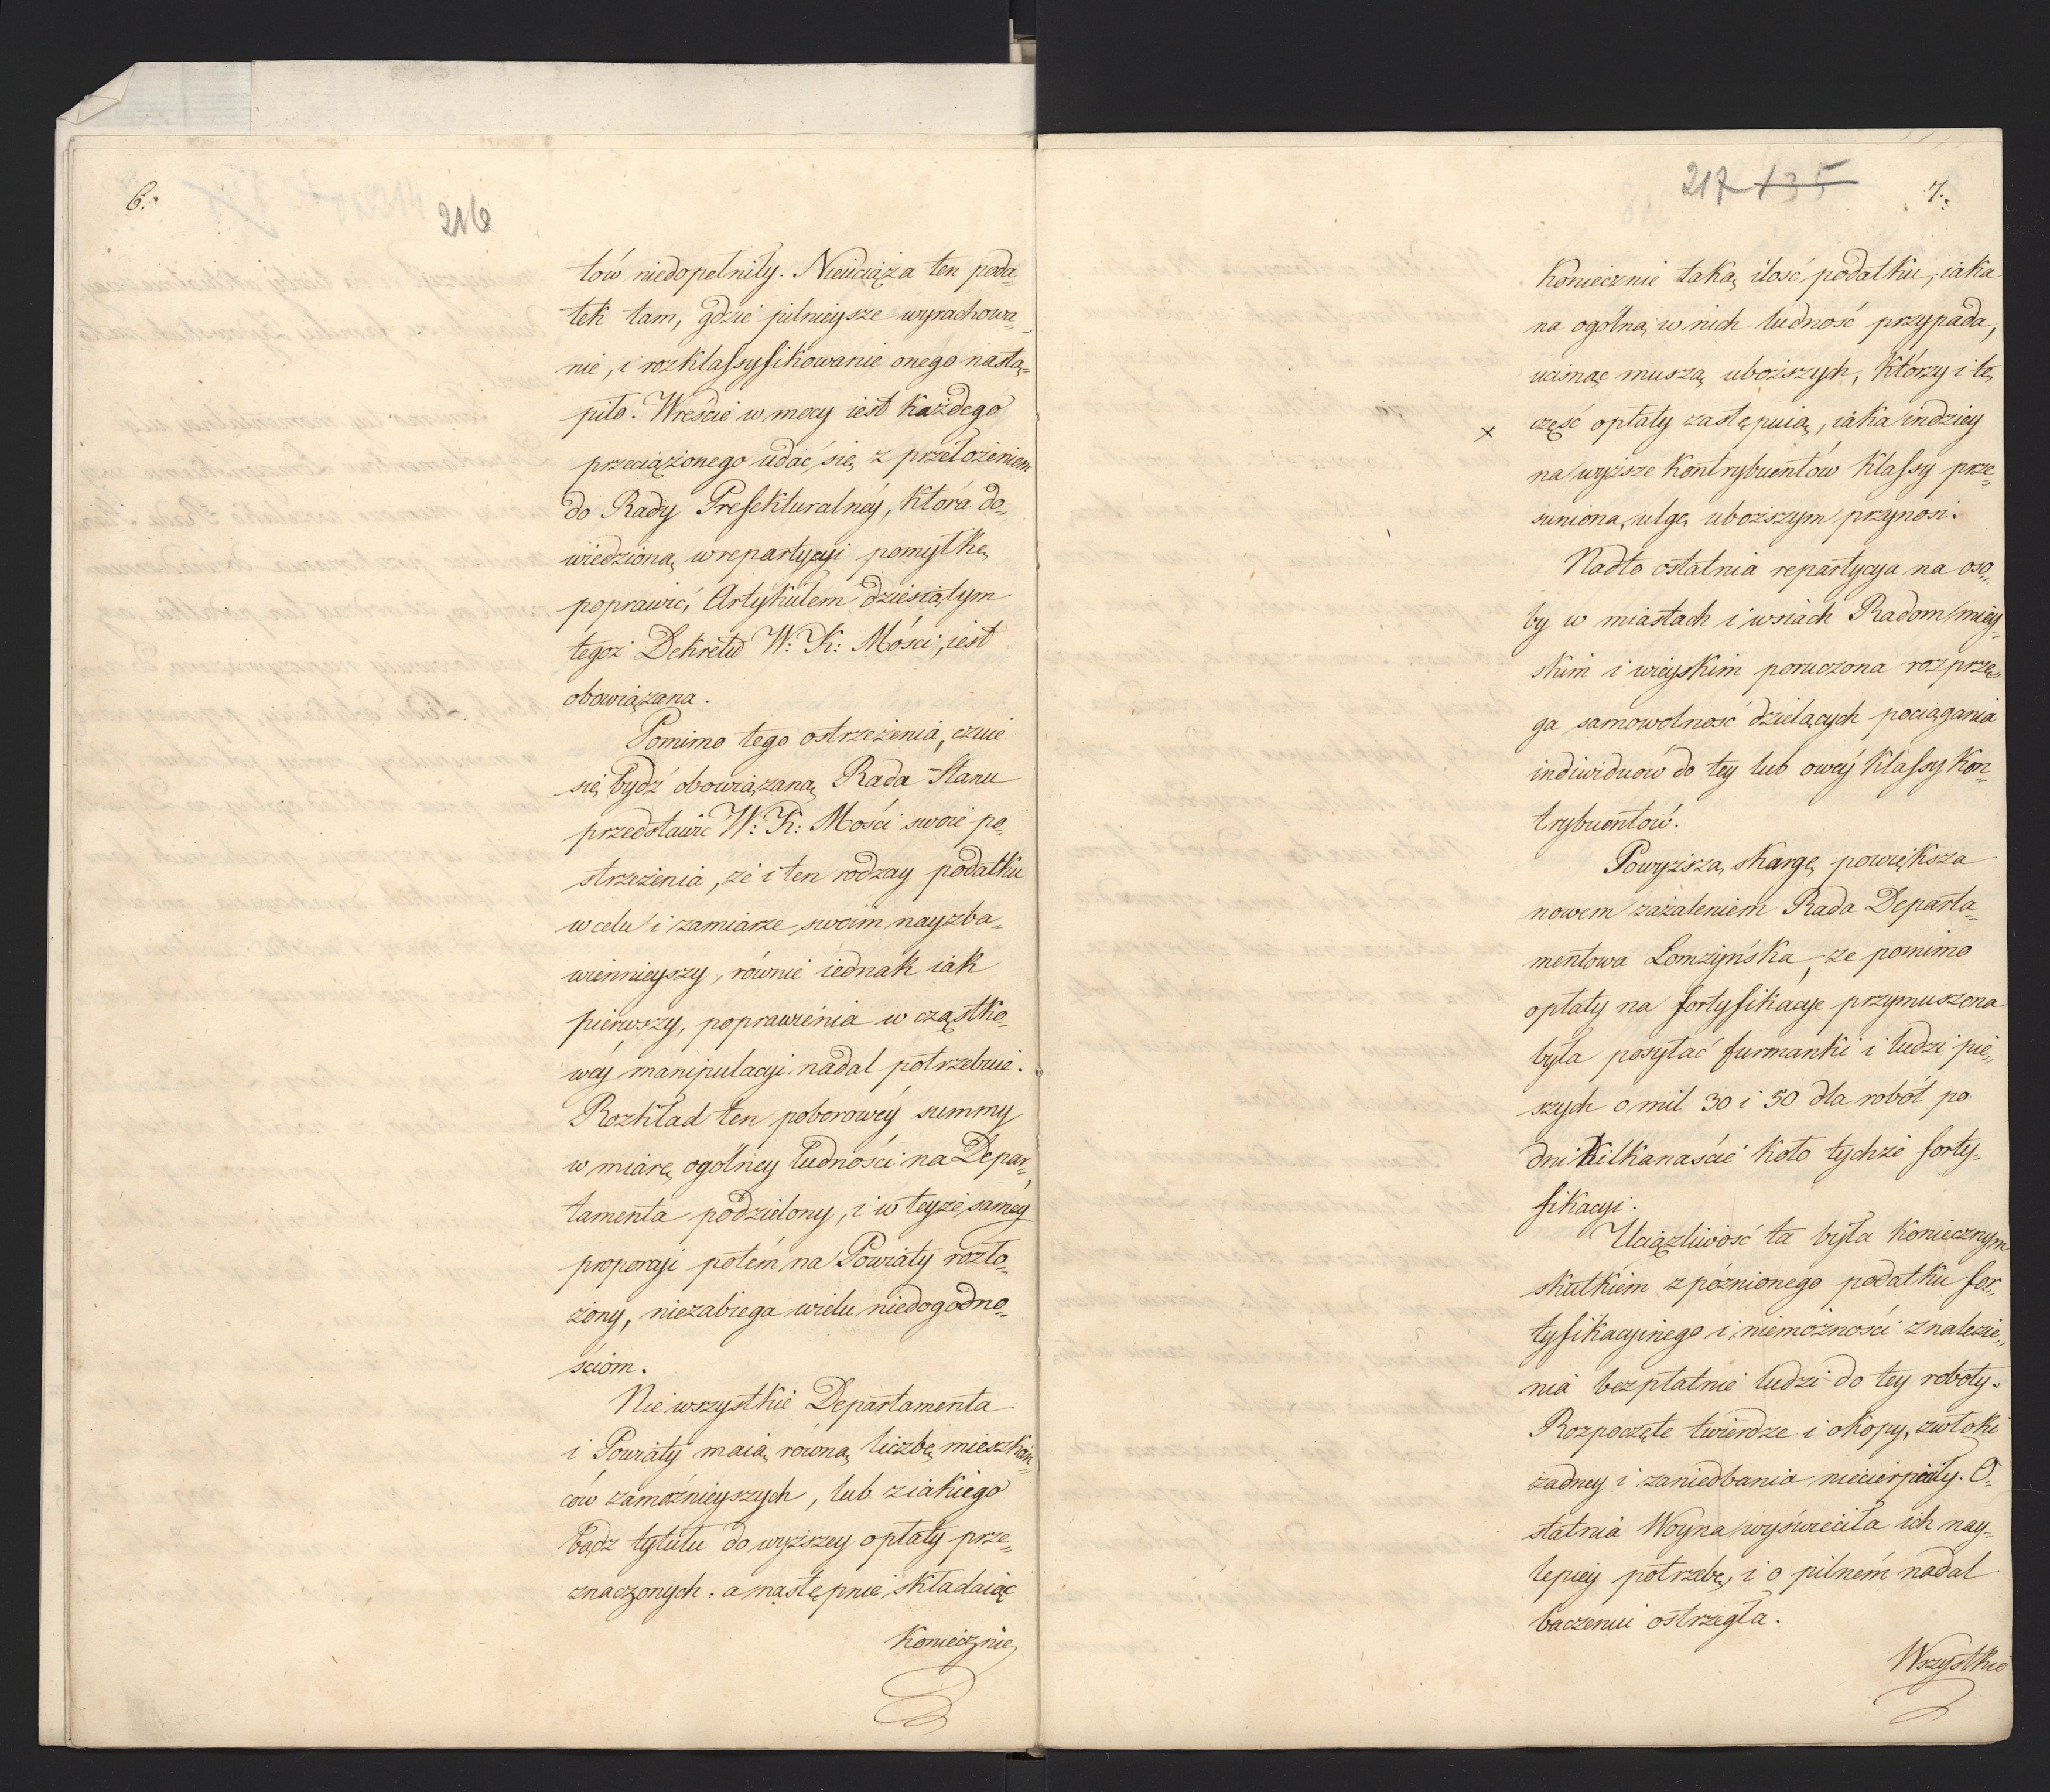 6.
216
tów niedopełniły. Nieuciąża ten poda„
tek tam, gdzie pilnieysze wyrachowa„
nie, i rozklassyfikowanie onego nastą„
piło. Wreście w mocy iest każdego
przeciążonego udać się z przełożeniem
do Rady Prefekturalnéy, która do„
wiedzioną w repartycyi pomyłkę
poprawić, Artykułem dziesiątym
tegoż Dekretu W: K: Mości, iest
obowiązana.
Pomimo tego ostrzeżenia, czuie
się bydź obowiązaną Rada Stanu
przedstawić W: K: Mości swoie po„
strzeżenia, że i ten rodzay podatku
w celu i zamiarze swoim nayzba„
wiennieyszy, równie iednak iak
pierwszy, poprawienia w cząstko„
wéy manipulacyi nadal potrzebuie.
Rozkład ten poborowéy summy
w miarę ogólney ludności na Depar„
tamenta podzielony, i w teyże saméy
proporcyi potém na Powiaty rozło„
żony, niezabiega wielu niedogodno„
ściom.
Nie wszystkie Departamenta
i Powiaty maią równą liczbę mieszkań„
ców zamożnieyszych, lub z iakiego
bądz tytułu do wyższey opłaty prze„
znaczonych. a następnie składaiąc
koniecznie
217 135
7.
Koniecznie taką ilość podatku, iaka
na ogólną w nich ludność przypada,
ucisnąc muszą uboższych, którzy i tę
x część opłaty zastępuią, iaka indziey
na wyższe Kontrybuentów Klassy prze„
suniona, ulgę uboższym przynosi.
Nadto ostatnia repartycya na oso„
by w miastach i wsiach Radom miey„
skim i wieyskim poruczona rozprzę„
ga samowolność dzielących pociągania
indiwiduów do tey lub owéy Klassy Kon„
trybuentów.
Powyższą skargę powiększa
nowem zażaleniem Rada Departa„
mentowa Łomżyńska, że pomimo
opłaty na fortyfikacye przymuszona
była posyłać furmanki i ludzi pie„
szych o mil 30 i 50 dla robót po
dni kilkanaście koło tychże forty„
fikacyi.
Uciążliwość ta była koniecznym
skutkiem zpóźnionego podatku for„
tyfikacyinego i niemożności znalezie„
nia bezpłatnie ludzi do tey roboty.
Rozpoczęte twierdze i okopy, zwłoki
żadney i zaniedbania niecierpiały. O„
statnia Woyna wyświeciła ich nay„
lepiey potrzebę, i o pilném nadal
baczeniu ostrzegła.
Wszystkie